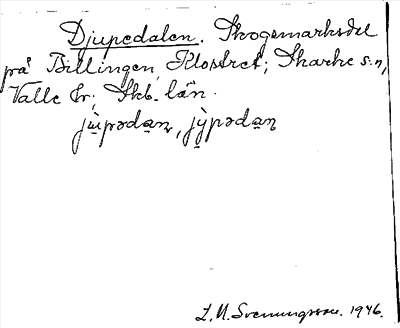 Djupedalen. Skogsmarksdel
på Billingen, Klostret; Skarke s:n,
Valle hr; Skb. län.
jùpədaɳ, jỳpədaɳ
L. M. Svenungsson. 1946.